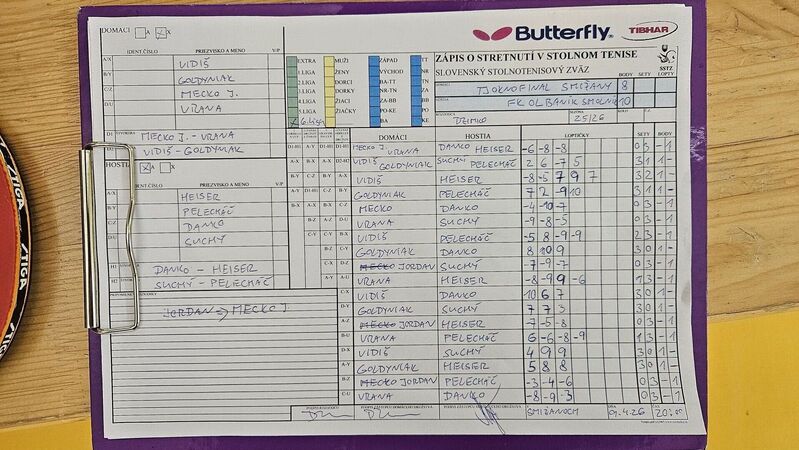 Butterfly
TIBHAR
DOMÁCI A X
IDENT.ČÍSLO PRIEZVISKO A MENO V/P
A/X VIDIŠ
B/Y GOLDYNIAK
C/Z MECKO J.
D/U VRANA
D1 MECKO J.-VRANA
VIDIŠ-GOLDYNIAK
HOSTIA A X
IDENT.ČÍSLO PRIEZVISKO A MENO V/P
A/X HEISER
B/Y PELECHÁČ
C/Z DANKO
D/U SUCHÝ
H1 DANKO - HEISER
H2 SUCHÝ - PELECHÁČ
JORDAN → MECKO J.
EXTRA MUŽI ZÁPAD TT
1.LIGA ŽENY VÝCHOD NR
2.LIGA DORCI BA-TT TN
3.LIGA DORKY NR-TN ZA
4.LIGA ŽIACI ZA-BB BB
5.LIGA ŽIAČKY PO-KE PO
6.liga BA KE
ZÁPIS O STRETNUTÍ V STOLNOM TENISE
SLOVENSKÝ STOLNOTENISOVÝ ZVÄZ
SSTZ
BODY SETY LOPTY
TJ OKNOFINAL SMIŽANY 8
FK OL BANÍK SMOLNÍK 10
DZIMKO 25/26
DOMÁCI HOSTIA LOPTIČKY SETY BODY
MECKO J. VRANA DANKO HEISER -6 -8 -8 0 3 - 1
VIDIŠ GOLDYNIAK SUCHÝ PELECHÁČ 2 6 -7 5 3 1 1 -
VIDIŠ HEISER -8 -5 7 9 7 3 2 1 -
GOLDYNIAK PELECHÁČ 7 2 -9 10 3 1 1 -
MECKO DANKO -4 -10 -7 0 3 - 1
VRANA SUCHÝ -9 -8 -5 0 3 - 1
VIDIŠ PELECHÁČ -5 8 -9 -9 1 3 - 1
GOLDYNIAK DANKO 8 10 9 3 0 1 -
MECKO JORDAN SUCHÝ -7 -9 -7 0 3 - 1
VRANA HEISER -8 -9 9 -6 1 3 - 1
VIDIŠ DANKO 10 6 7 3 0 1 -
GOLDYNIAK SUCHÝ 7 7 3 3 0 1 -
MECKO JORDAN HEISER -7 -5 -8 0 3 - 1
VRANA PELECHÁČ 6 -6 -8 -9 1 3 - 1
VIDIŠ SUCHÝ 4 9 9 3 0 1 -
GOLDYNIAK HEISER 5 8 8 3 0 1 -
MECKO JORDAN PELECHÁČ -3 -4 -6 0 3 - 1
VRANA DANKO -8 -9 -3 0 3 - 1
SMIŽANOCH 9.4.26 20:00
STIGA